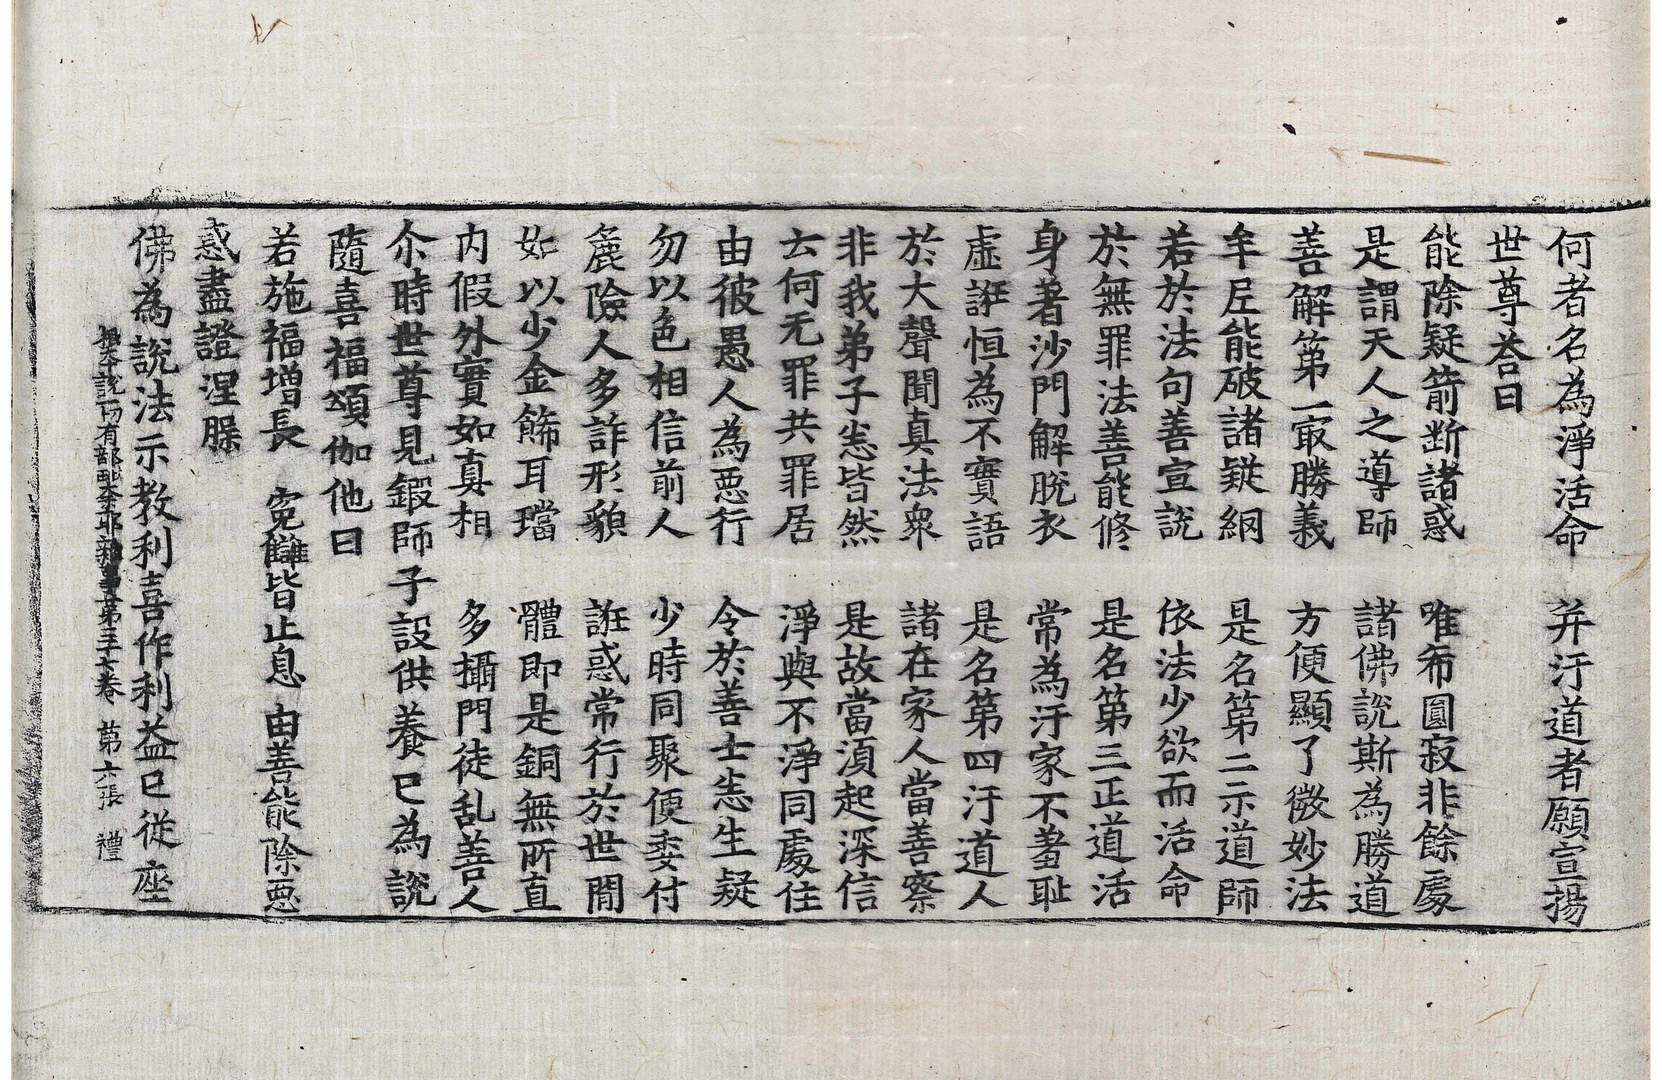 何者名為淨活命 并汙道者願宣揚
世尊荅曰
能除疑箭断諸惑 唯希圓寂非餘處
是謂天人之導師 諸佛說斯為勝道
善解第一㝡勝義 方便顯了微妙法
牟尼能破諸疑網 是名第二示道師
若於法句善宣說 依法少欲而活命
於無罪法善能修 是名第三正道活
身著沙門解脫衣 常為汙家不羞耻
虛誑恒為不實語 是名第四汙道人
於大聲聞真法衆 諸在家人當善察
非我弟子恙皆然 是故當湏起深信
云何无罪共罪居 淨與不淨同處住
由彼愚人為惡行 令於善士恙生疑
勿以色相信前人 少時同聚便委付
麁險人多詐形貌 誑惑常行於世閒
如以少金飾耳璫 體即是銅無所直
内假外實如真相 多攝門徒乱善人
尒時世尊見鍛師子設供養已為說
隨喜福頌伽他曰
若施福增長 寃讎皆止息 由善能除惡
惑盡證涅槃
佛為說法示教利喜作利益已從座
根本說一切有部毗奈耶雜事第三十七卷 第六張 禮